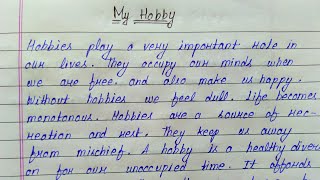 My Hobby
Hobbies play a very important role in
our lives. They occupy our minds when
we are free. and also make us happy.
Without hobbies we feel dull. Life becomes
monotonous. Hobbies are a source of rec-
reation and rest. They keep us away
from mischief. A hobby is a healthy divers
on for our unoccupied time. It affords